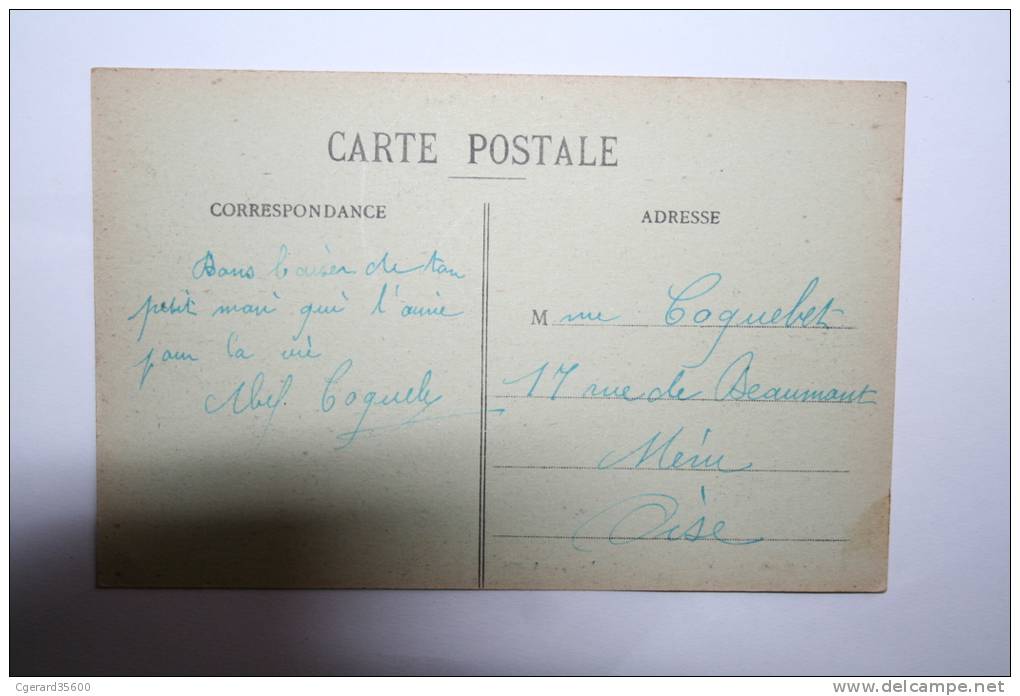 CARTE POSTALE
CORRESPONDANCE
Bons baiser de ton
petit mari qui l'aime
pour la vie
Abel Coquebe
ADRESSE
Mme Coquebet
17 rue de Beaumont
Méru
Oise
Cgerard35600
www.delcampe.net